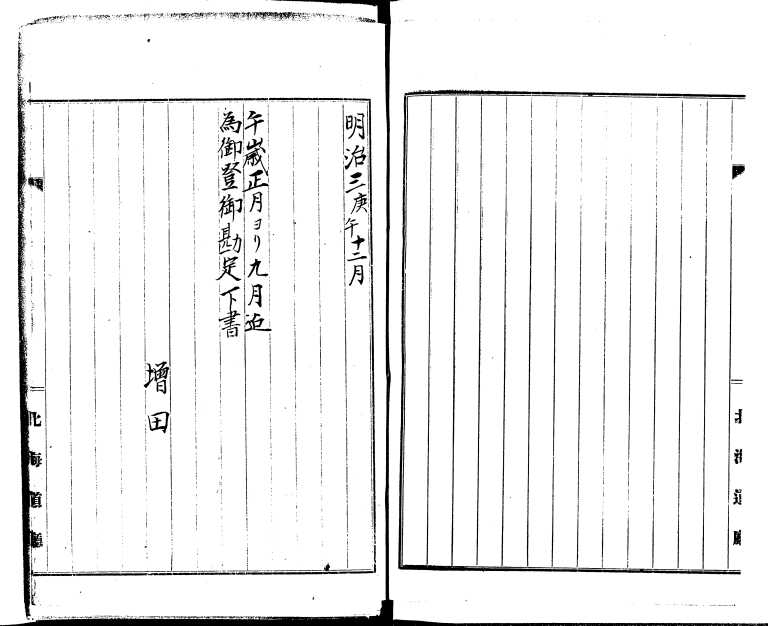 明治三庚午十二月
午歳正月ヨリ九月迄
為御登御勘定下書
増田
北海道廳
北海道廳